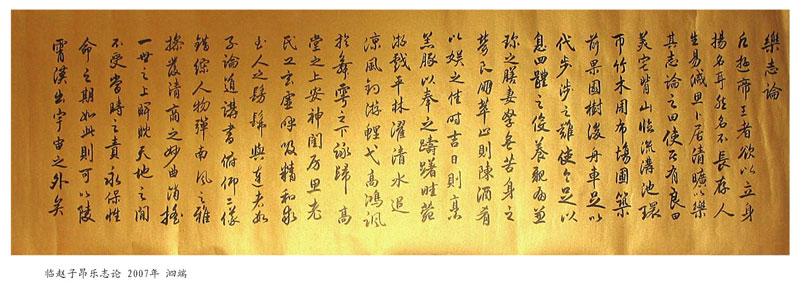 樂志論
凡遊帝王者欲以立身
揚名耳然名不長存人
生易滅思卜居清曠以樂
其志論之曰使居有良田
美宅背山臨流溝池環
帀竹木周布場圃築
前果園樹後舟車足以
代步涉之難使令足以
息四體之役養親有兼
珍之膳妻孥無苦身之
勞良朋萃止則陳酒肴
以娛之佳時吉日則烹
羔豚以奉之躊躇畦苑
游戲平林濯清水追
涼風釣游鯉弋高鴻諷
於舞雩之下詠歸高
堂之上安神閨房思老
氏之玄虛呼吸精和求
至人之髣髴與達者數
子論道講書俯仰二儀
錯綜人物彈南風之雅
操發清商之妙曲逍遙
一世之上睥睨天地之間
不受當時之責永保性
命之期如此則可以陵
霄漢出宇宙之外矣
临赵子昂乐志论 2007年 洄端